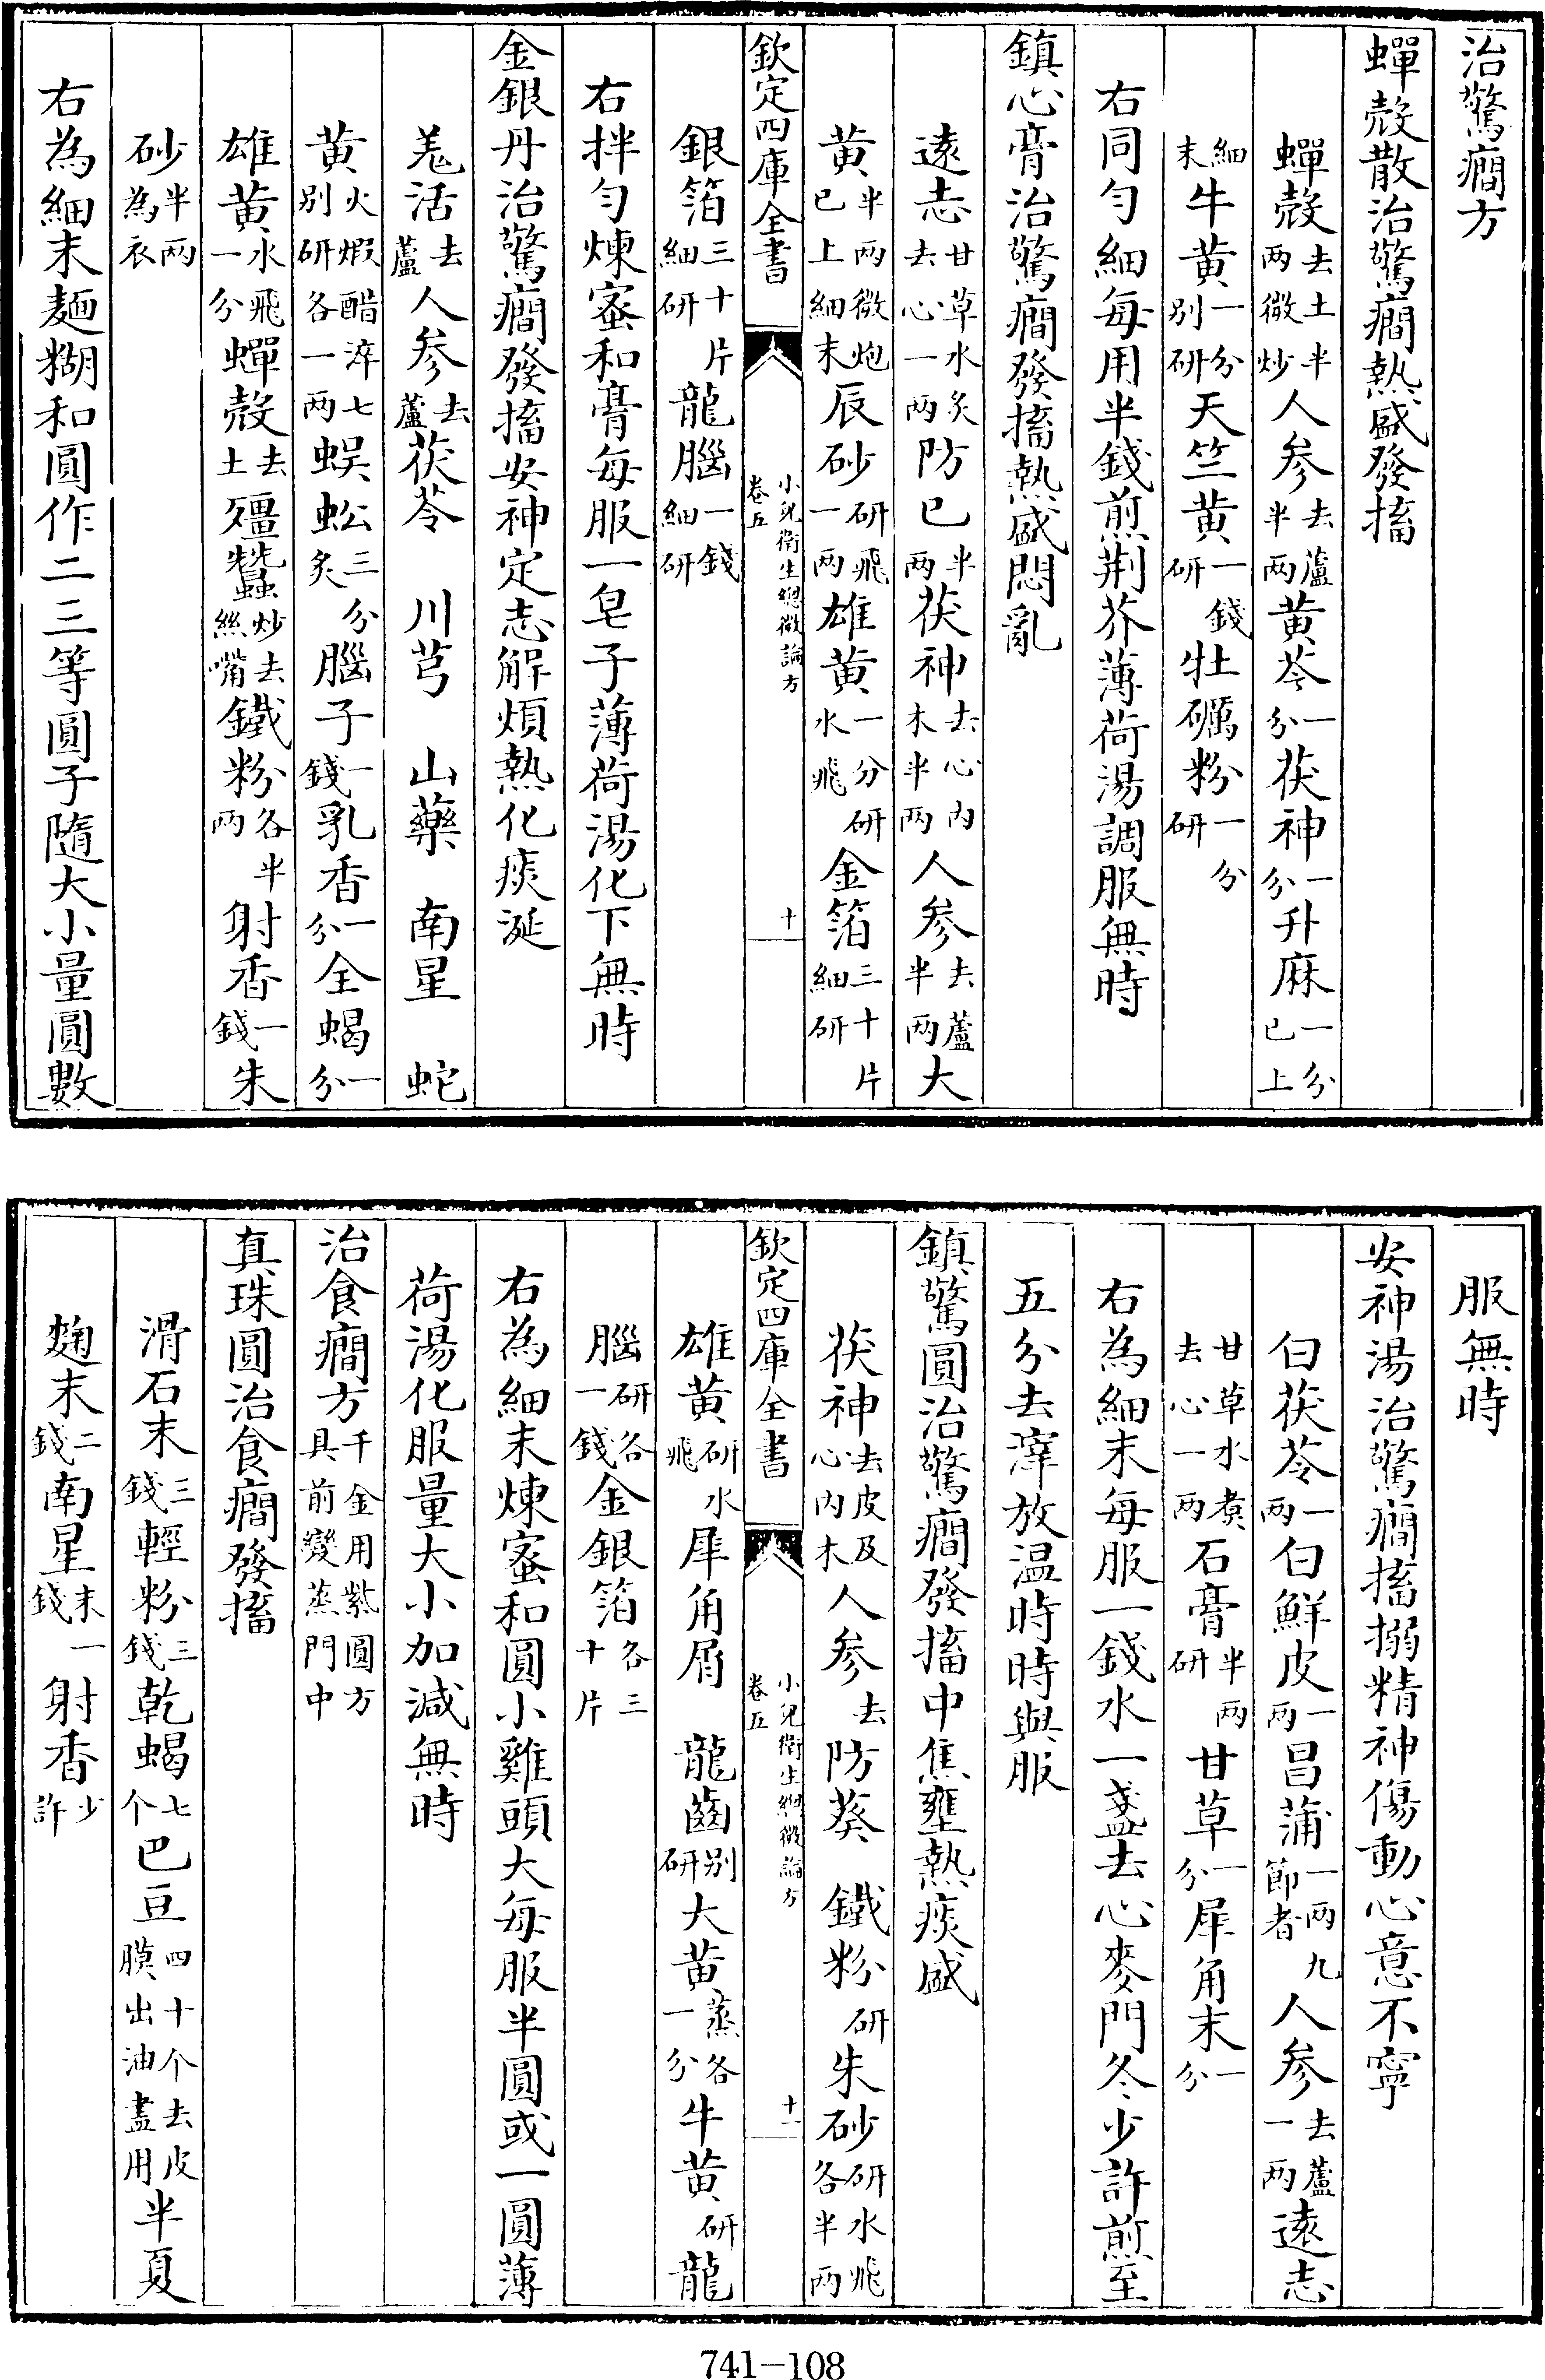 治驚癇方
蟬殻散治驚癇熱盛發搐
蟬殻去土半两微炒人参去蘆半两黄芩一分茯神一分升麻一分已上
細末牛黄一分别研天竺黄一錢研牡礪粉一分研
右同匀細每用半錢煎荆芥薄荷湯調服無時
鎮心膏治驚癇發搐熱盛悶亂
遠志甘草水炙去心一两防已半两茯神去心内木半两人参去蘆半两大
黄半两微炮已上細末辰砂研飛一两雄黄一分研水飛金箔三十片細研
欽定四庫全書 小兒衛生總微論方 卷五 十
銀箔三十片細研龍腦一錢細研
右拌匀煉蜜和膏每服一皂子薄荷湯化下無時
金銀丹治驚癇發搐安神定志解煩熱化痰涎
羗活去蘆人参去蘆茯苓 川芎 山藥 南星 蛇
黄火煆醋淬七别研各一两蜈蚣三分炙腦子一錢乳香一分全蝎一分
雄黄水飛一分蟬殻去土殭蠶炒去絲嘴鐵粉各半两射香一錢朱
砂半两為衣
右為細末麵糊和圓作二三等圓子隨大小量圓數
服無時
安神湯治驚癇搐搦精神傷動心意不寧
白茯苓一两白鮮皮一两昌蒲一两九節者人参去蘆一两遠志
甘草水煮去心一两石膏半两研甘草一分犀角末一分
右為細末每服一錢水一盞去心麥門冬少許煎至
五分去滓放温時時與服
鎮驚圓治驚癇發搐中焦壅熱痰盛
茯神去皮及心内木人参去防葵 鐵粉研朱砂研水飛各半两
欽定四庫全書 小兒衛生總微論方 卷五 十一
雄黄研水飛犀角屑 龍齒别研大黄蒸各一分牛黄研龍
腦研各一錢金銀箔各三十片
右為細末煉蜜和圓小雞頭大每服半圓或一圓薄
荷湯化服量大小加減無時
治食癇方千金用紫圓方具前變蒸門中
真珠圓治食癇發搐
滑石末三錢輕粉三錢乾蝎七个巴豆四十个去皮膜出油盡用半夏
麴末二錢南星末一錢射香少許
741-108